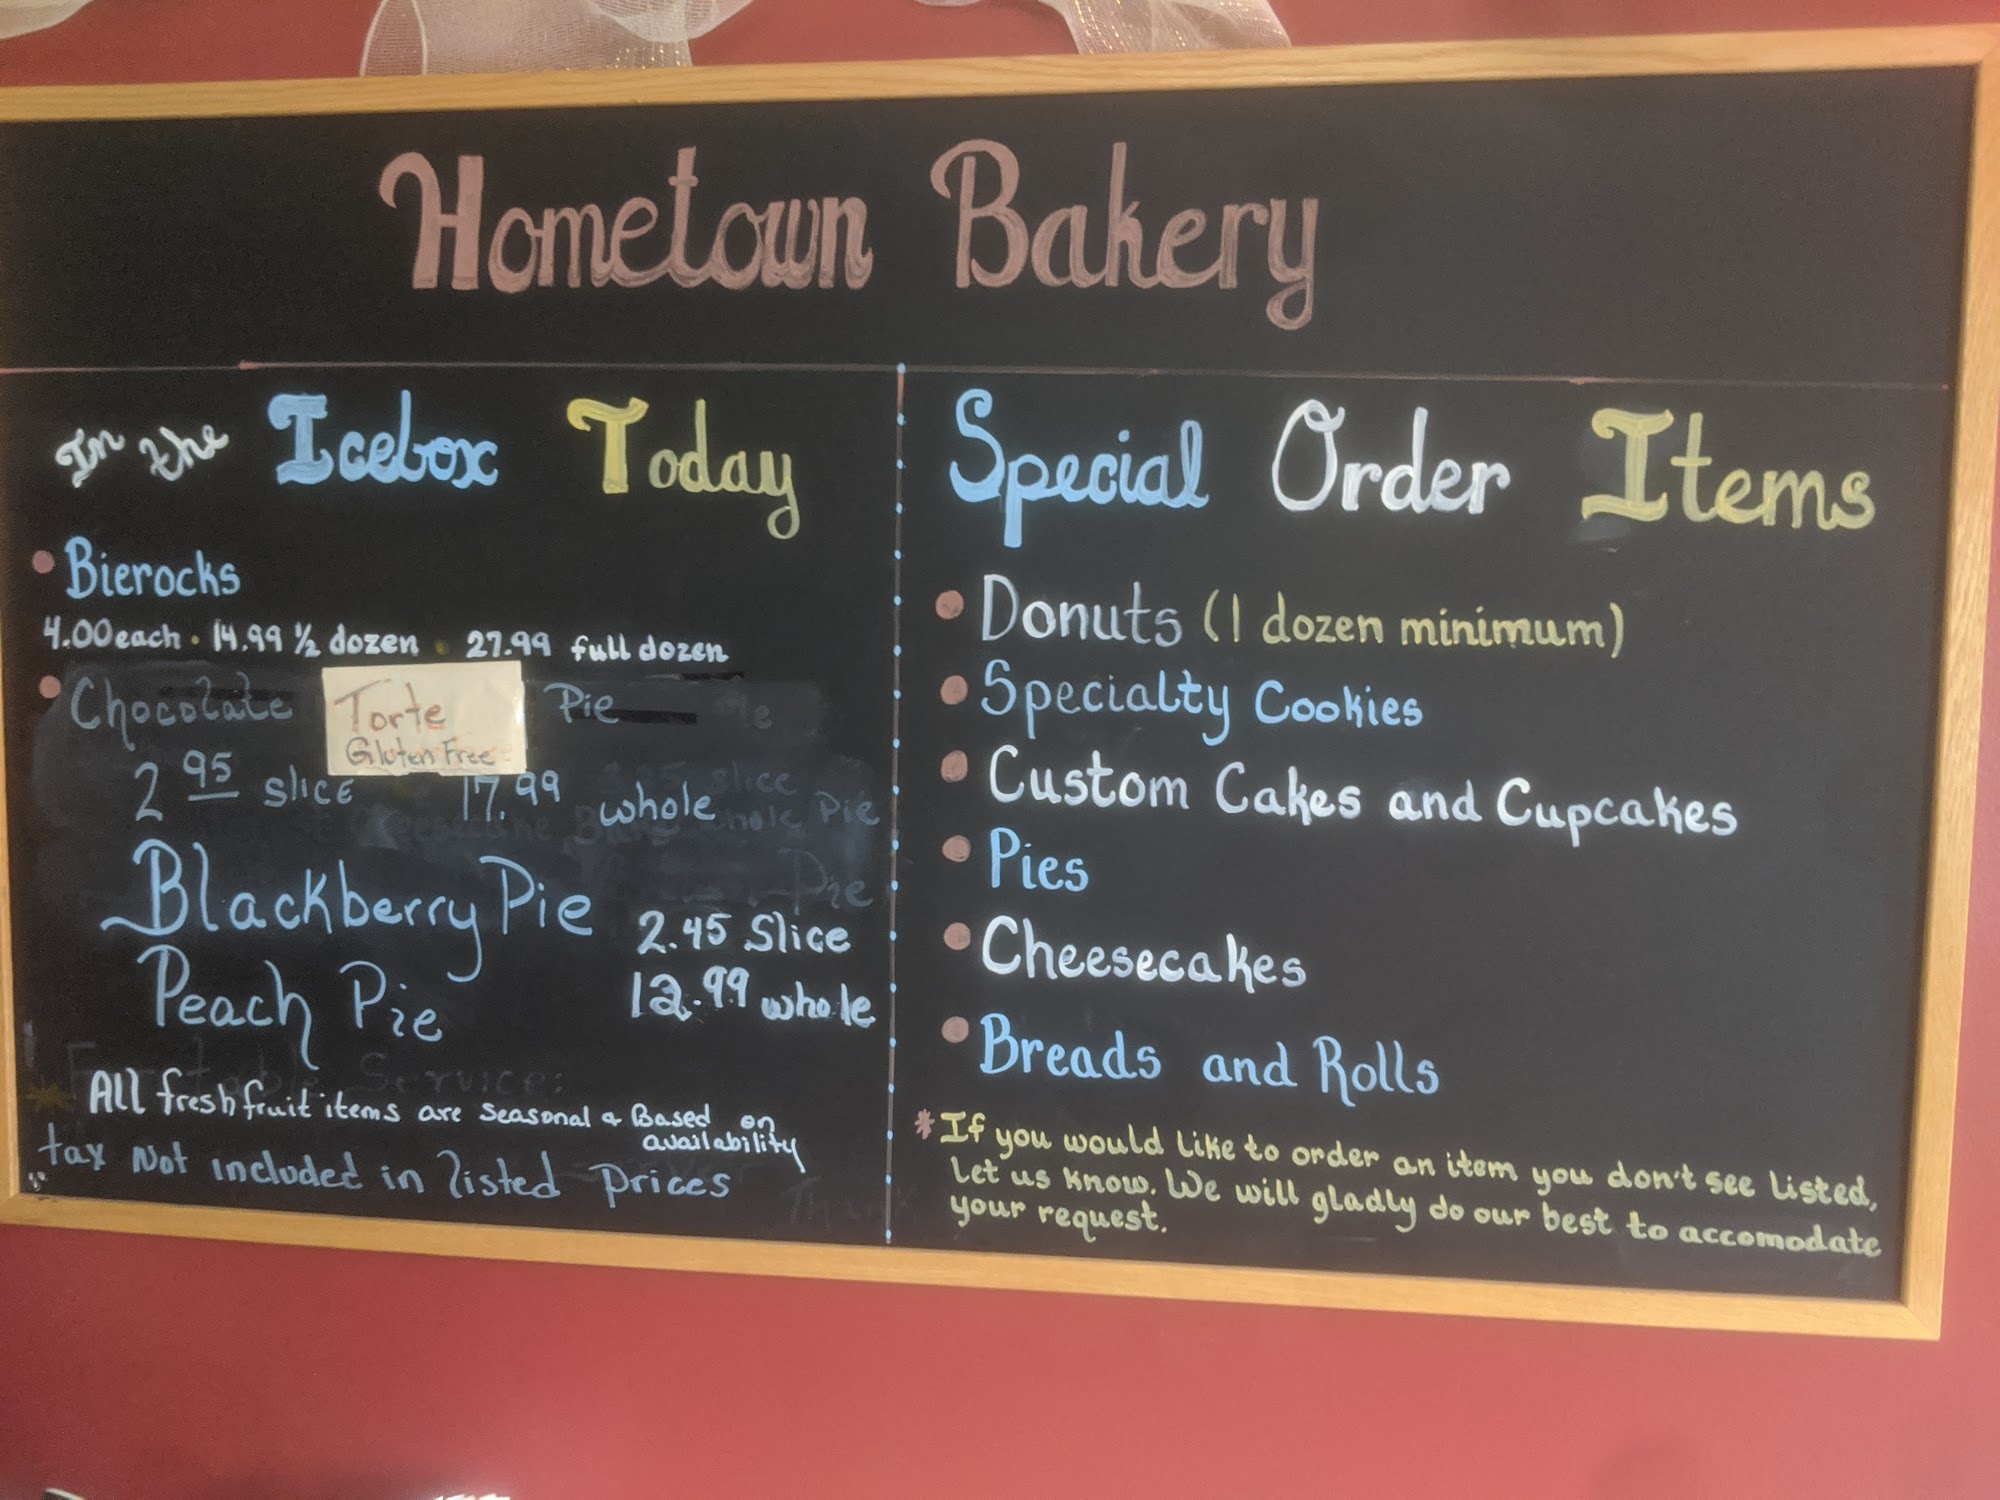 Hometown Bakery
In the Icebox Today
Bierocks
4.00 each · 14.99 ½ dozen · 27.99 full dozen
Chocolate Torte Pie
Gluten Free
2 95 slice 17.99 whole
Blackberry Pie
2.45 Slice
Peach Pie
12.99 whole
All fresh fruit items are seasonal & Based on
availability
tax Not included in listed prices
Special Order Items
Donuts (1 dozen minimum)
Specialty Cookies
Custom Cakes and Cupcakes
Pies
Cheesecakes
Breads and Rolls
* If you would like to order an item you don't see listed,
Let us know. We will gladly do our best to accomodate
your request.